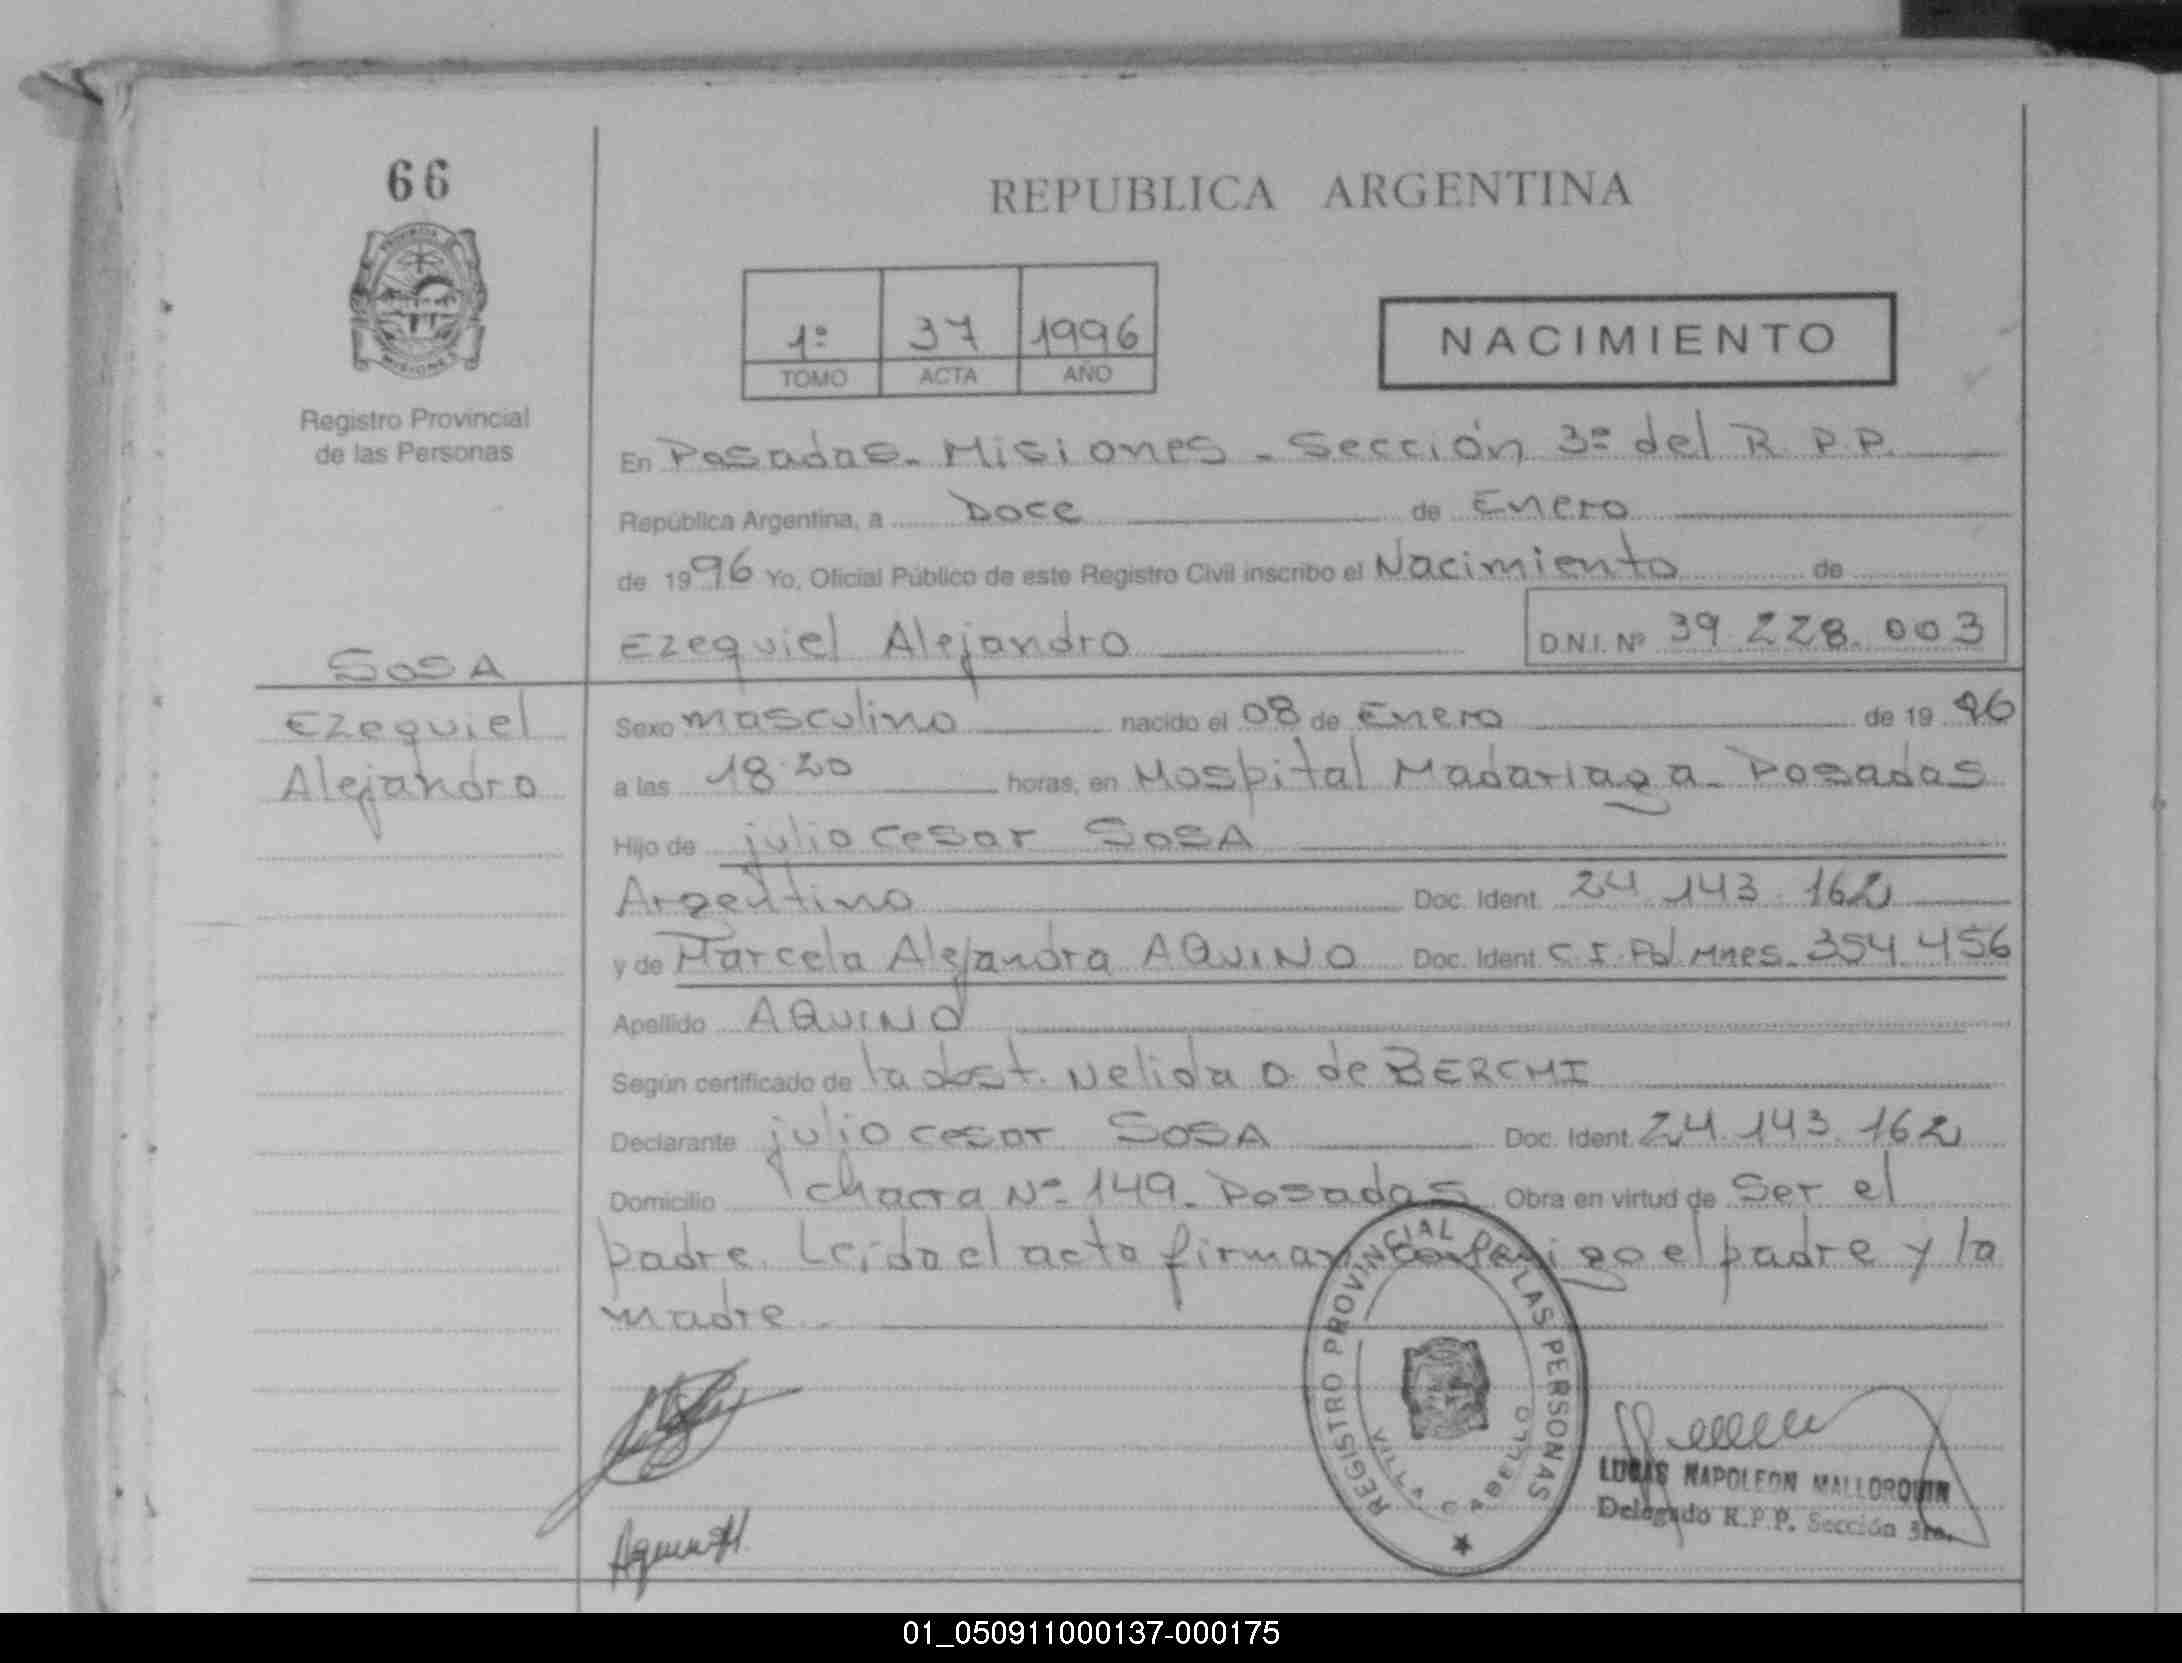 66
REPUBLICA ARGENTINA
1º 37 1996
TOMO ACTA AÑO
NACIMIENTO
Registro Provincial
de las Personas
En Posadas - Misiones - Sección 3º del R.P.P.
República Argentina, a Doce de Enero
de 1996 Yo, Oficial Público de este Registro Civil inscribo el Nacimiento de
Ezequiel Alejandro D.N.I. Nº 39.228.003
SOSA
Ezequiel
Alejandro
Sexo masculino nacido el 08 de Enero de 1996
a las 18.20 horas, en Hospital Madariaga - Posadas
Hijo de julio cesar SOSA
Argentino Doc. Ident. 24.143.162
y de Marcela Alejandra AQUINO Doc. Ident. C.I. Pol. Mnes. 354.456
Apellido AQUINO
Según certificado de la obst. Nelida O. de BERCHI
Declarante julio cesar SOSA Doc. Ident. 24.143.162
Domicilio chacra Nº 149 - Posadas Obra en virtud de Ser el
padre. Leida el acta firman conmigo el padre y la
madre.-
REGISTRO PROVINCIAL DE LAS PERSONAS
VILLA CABELLO
LUCAS NAPOLEON MALLORQUIN
Delegado R.P.P. Sección 3ra.
01_050911000137-000175